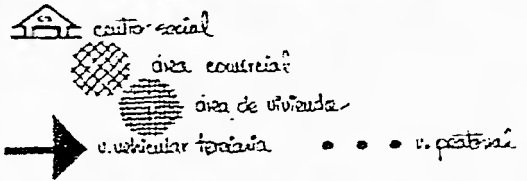 centro social
área comercial
área de vivienda
v. vehicular terciaria v. peatonal